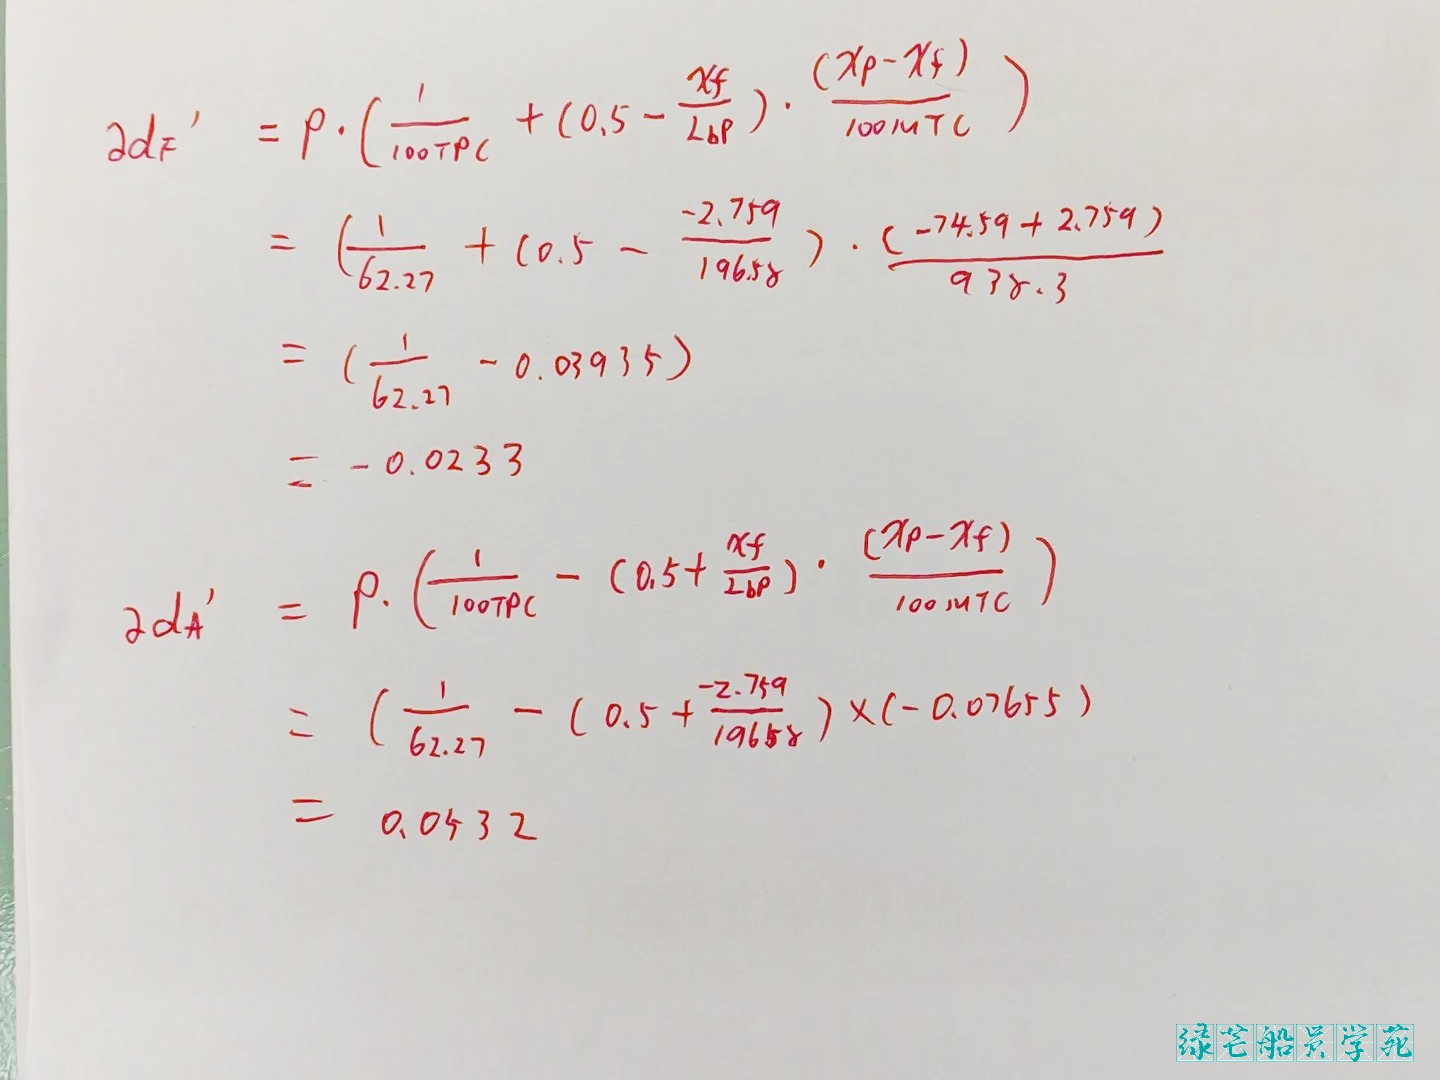 ∂dF' = P·(1/100TPC + (0.5 - xf/Lbp)·(xp-xf)/100MTC)
= (1/62.27 + (0.5 - -2.759/196.58)·(-74.59+2.759)/938.3
= (1/62.27 - 0.03935)
= -0.0233
∂dA' = P·(1/100TPC - (0.5+xf/Lbp)·(xp-xf)/100MTC)
= (1/62.27 - (0.5+-2.759/196.58)×(-0.07655)
= 0.0532
绿芒船员学苑